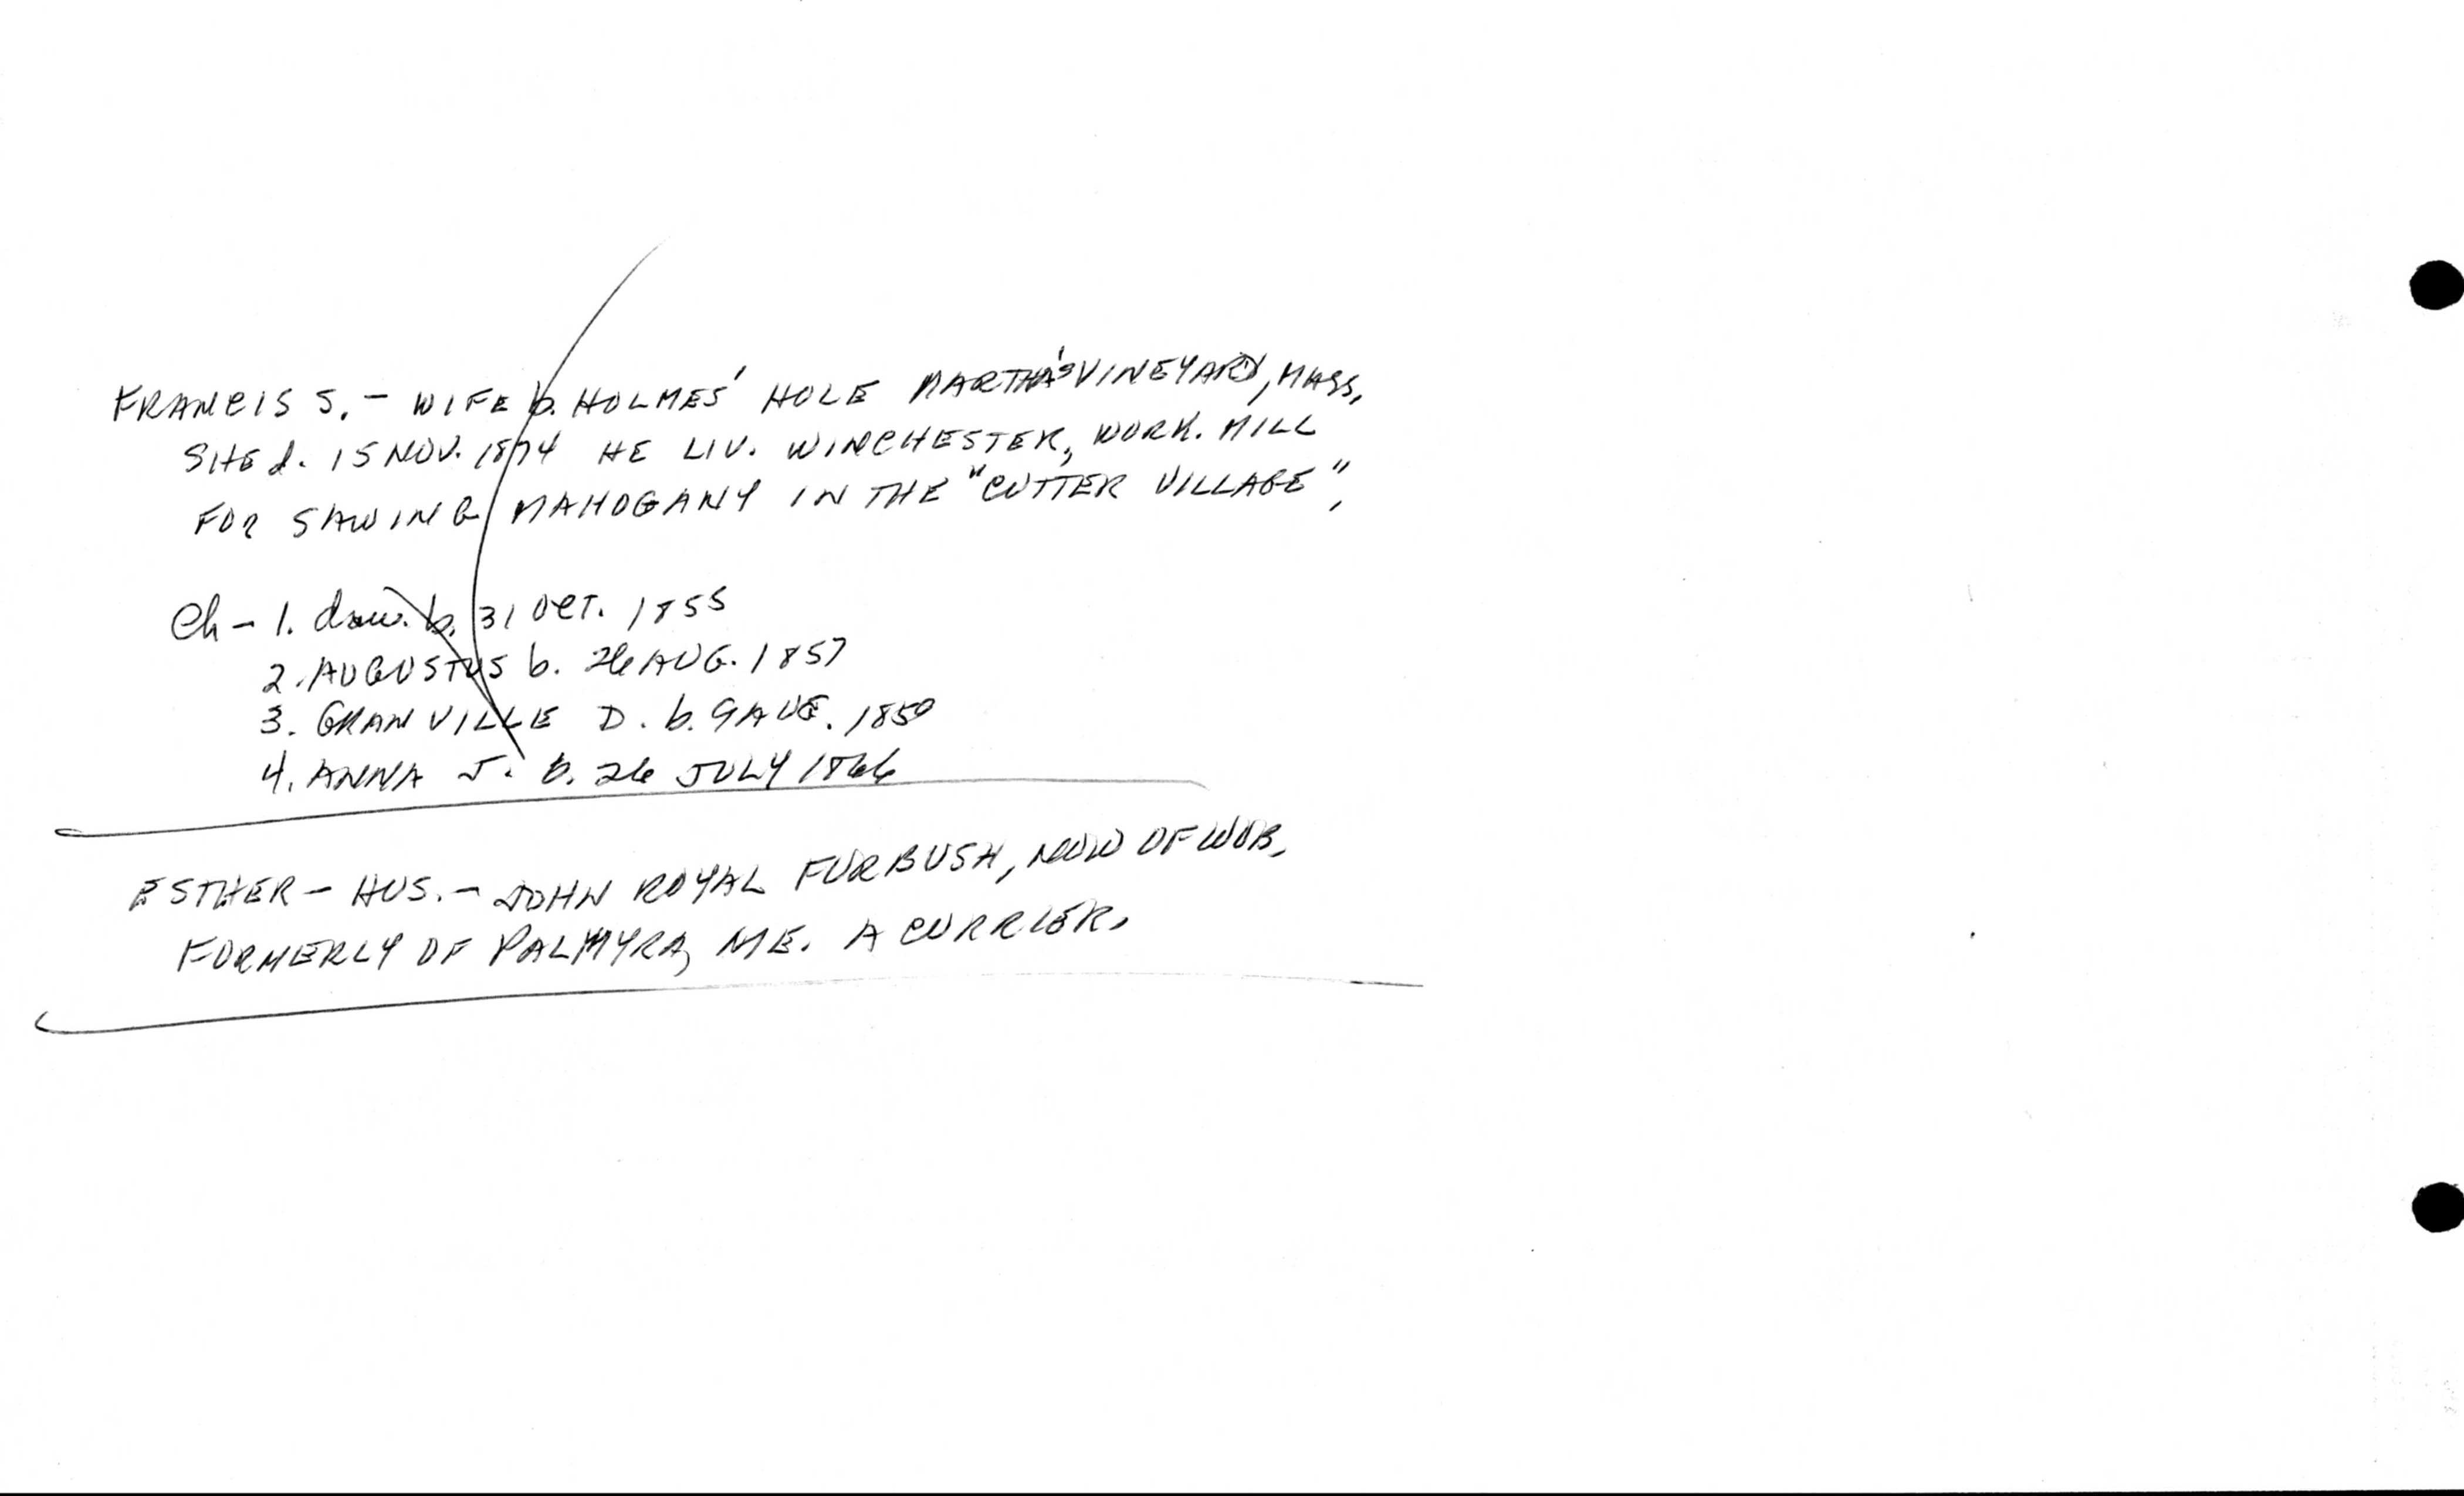 FRANCIS S. - WIFE b. HOLMES' HOLE MARTHA'S VINEYARD, MASS.
SHE d. 15 NOV. 1874 HE LIV. WINCHESTER, WORK. MILL
FOR SAWING MAHOGANY IN THE "CUTTER VILLAGE",
Ch - 1. dau. b. 31 OCT. 1855
2. AUGUSTUS b. 26 AUG. 1857
3. GRANVILLE D. b. 9 AUG. 1859
4. ANNA J. b. 26 JULY 1866
ESTHER - HUS. - JOHN ROYAL FURBUSH, NOW OF WOB.
FORMERLY OF PALMYRA, ME. A CURRIER.